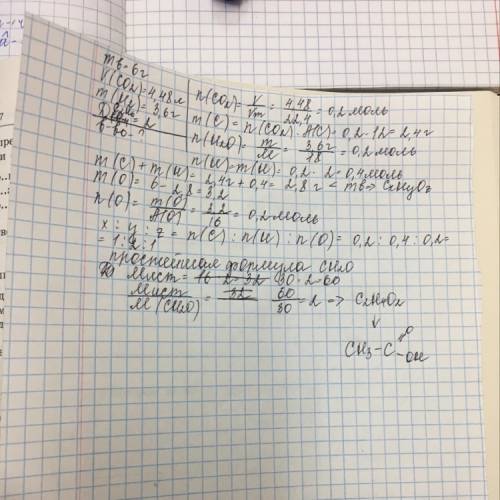 mв=6г
V(CO2)=4,48л
m(H2O)=3,6г
в-во-?
n(CO2)=V/Vm=4,48/22,4=0,2моль
m(C)=n(CO2)·A(C)=0,2·12=2,4г
n(H2O)=m/M=3,6г/18=0,2моль
n(H)=0,2·2=0,4моль
m(C)+m(H)=2,4г+0,4=2,8г<mв=>CxHyOz
m(O)=6-2,8=3,2
n(O)=m(O)/A(O)=3,2/16=0,2моль
x:y:z=n(C):n(H):n(O)=0,2:0,4:0,2=
=1:2:1
простейшая формула CH2O
Mист= 30·2=60
Mист/M(CH2O)=60/30=2=>C2H4O2
↓
CH3-C=O
-OH